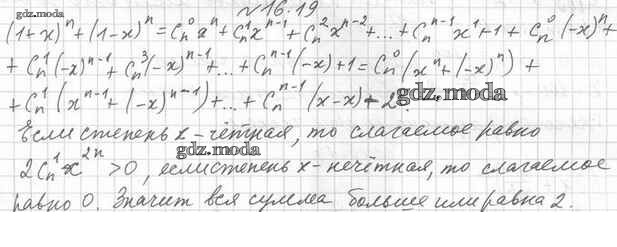 №16.19
gdz.moda
(1+x)^n+(1-x)^n = C_n^0 x^n + C_n^1 x^{n-1} + C_n^2 x^{n-2} + ... + C_n^{n-1} x^1 + 1 + C_n^0 (-x)^n +
+ C_n^1 (-x)^{n-1} + C_n^3 (-x)^{n-1} + ... + C_n^{n-1} (-x) + 1 = C_n^0 (x^n + (-x)^n) +
+ C_n^1 (x^{n-1} + (-x)^{n-1}) + ... + C_n^{n-1} (x-x) + 2.
gdz.moda
Если степень x - чётная, то слагаемое равно
gdz.moda
2C_n^1 x^{2n} > 0, если степень x - нечётная, то слагаемое
равно 0. Значит вся сумма больше или равна 2.